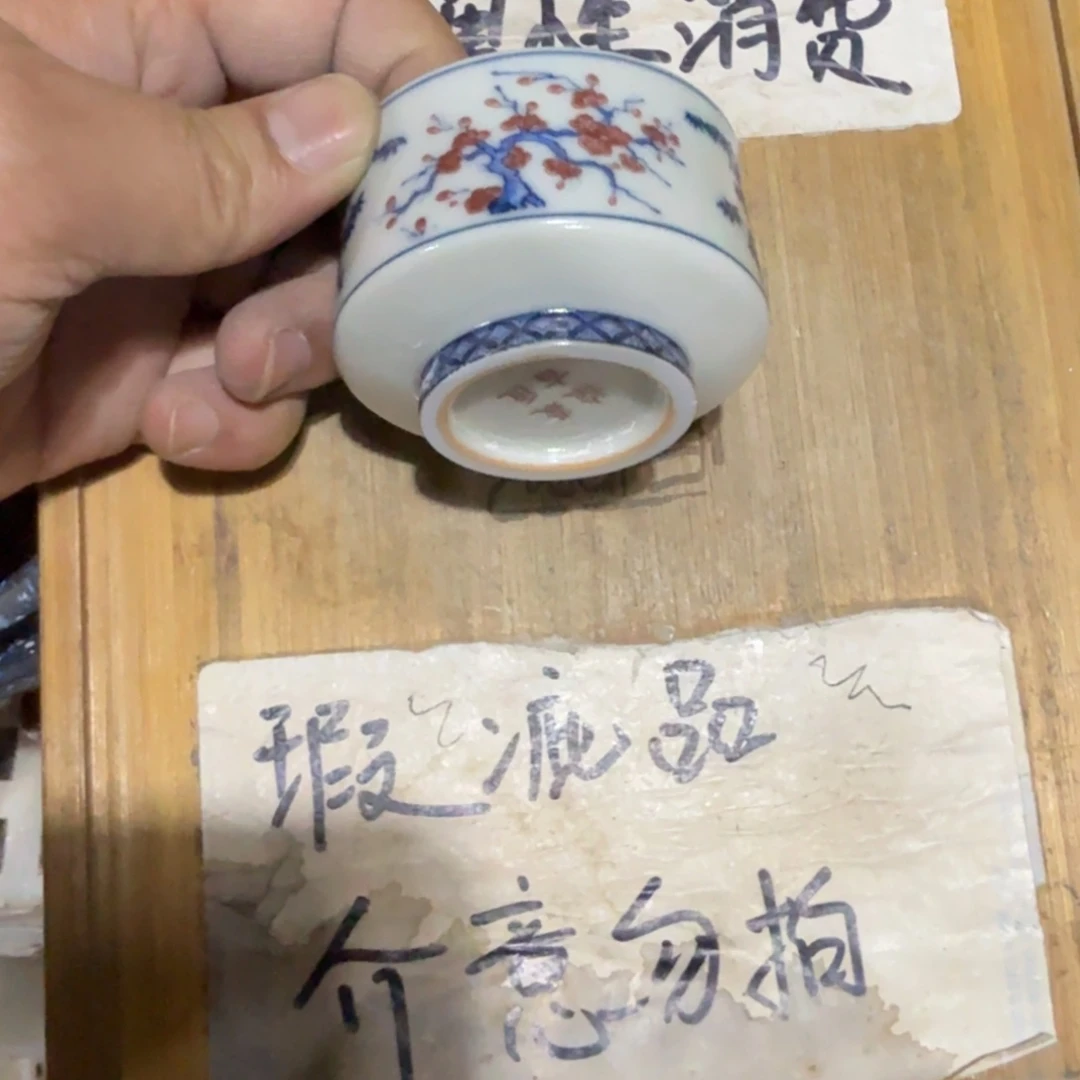 理性消费
瑕疵品
介意勿拍